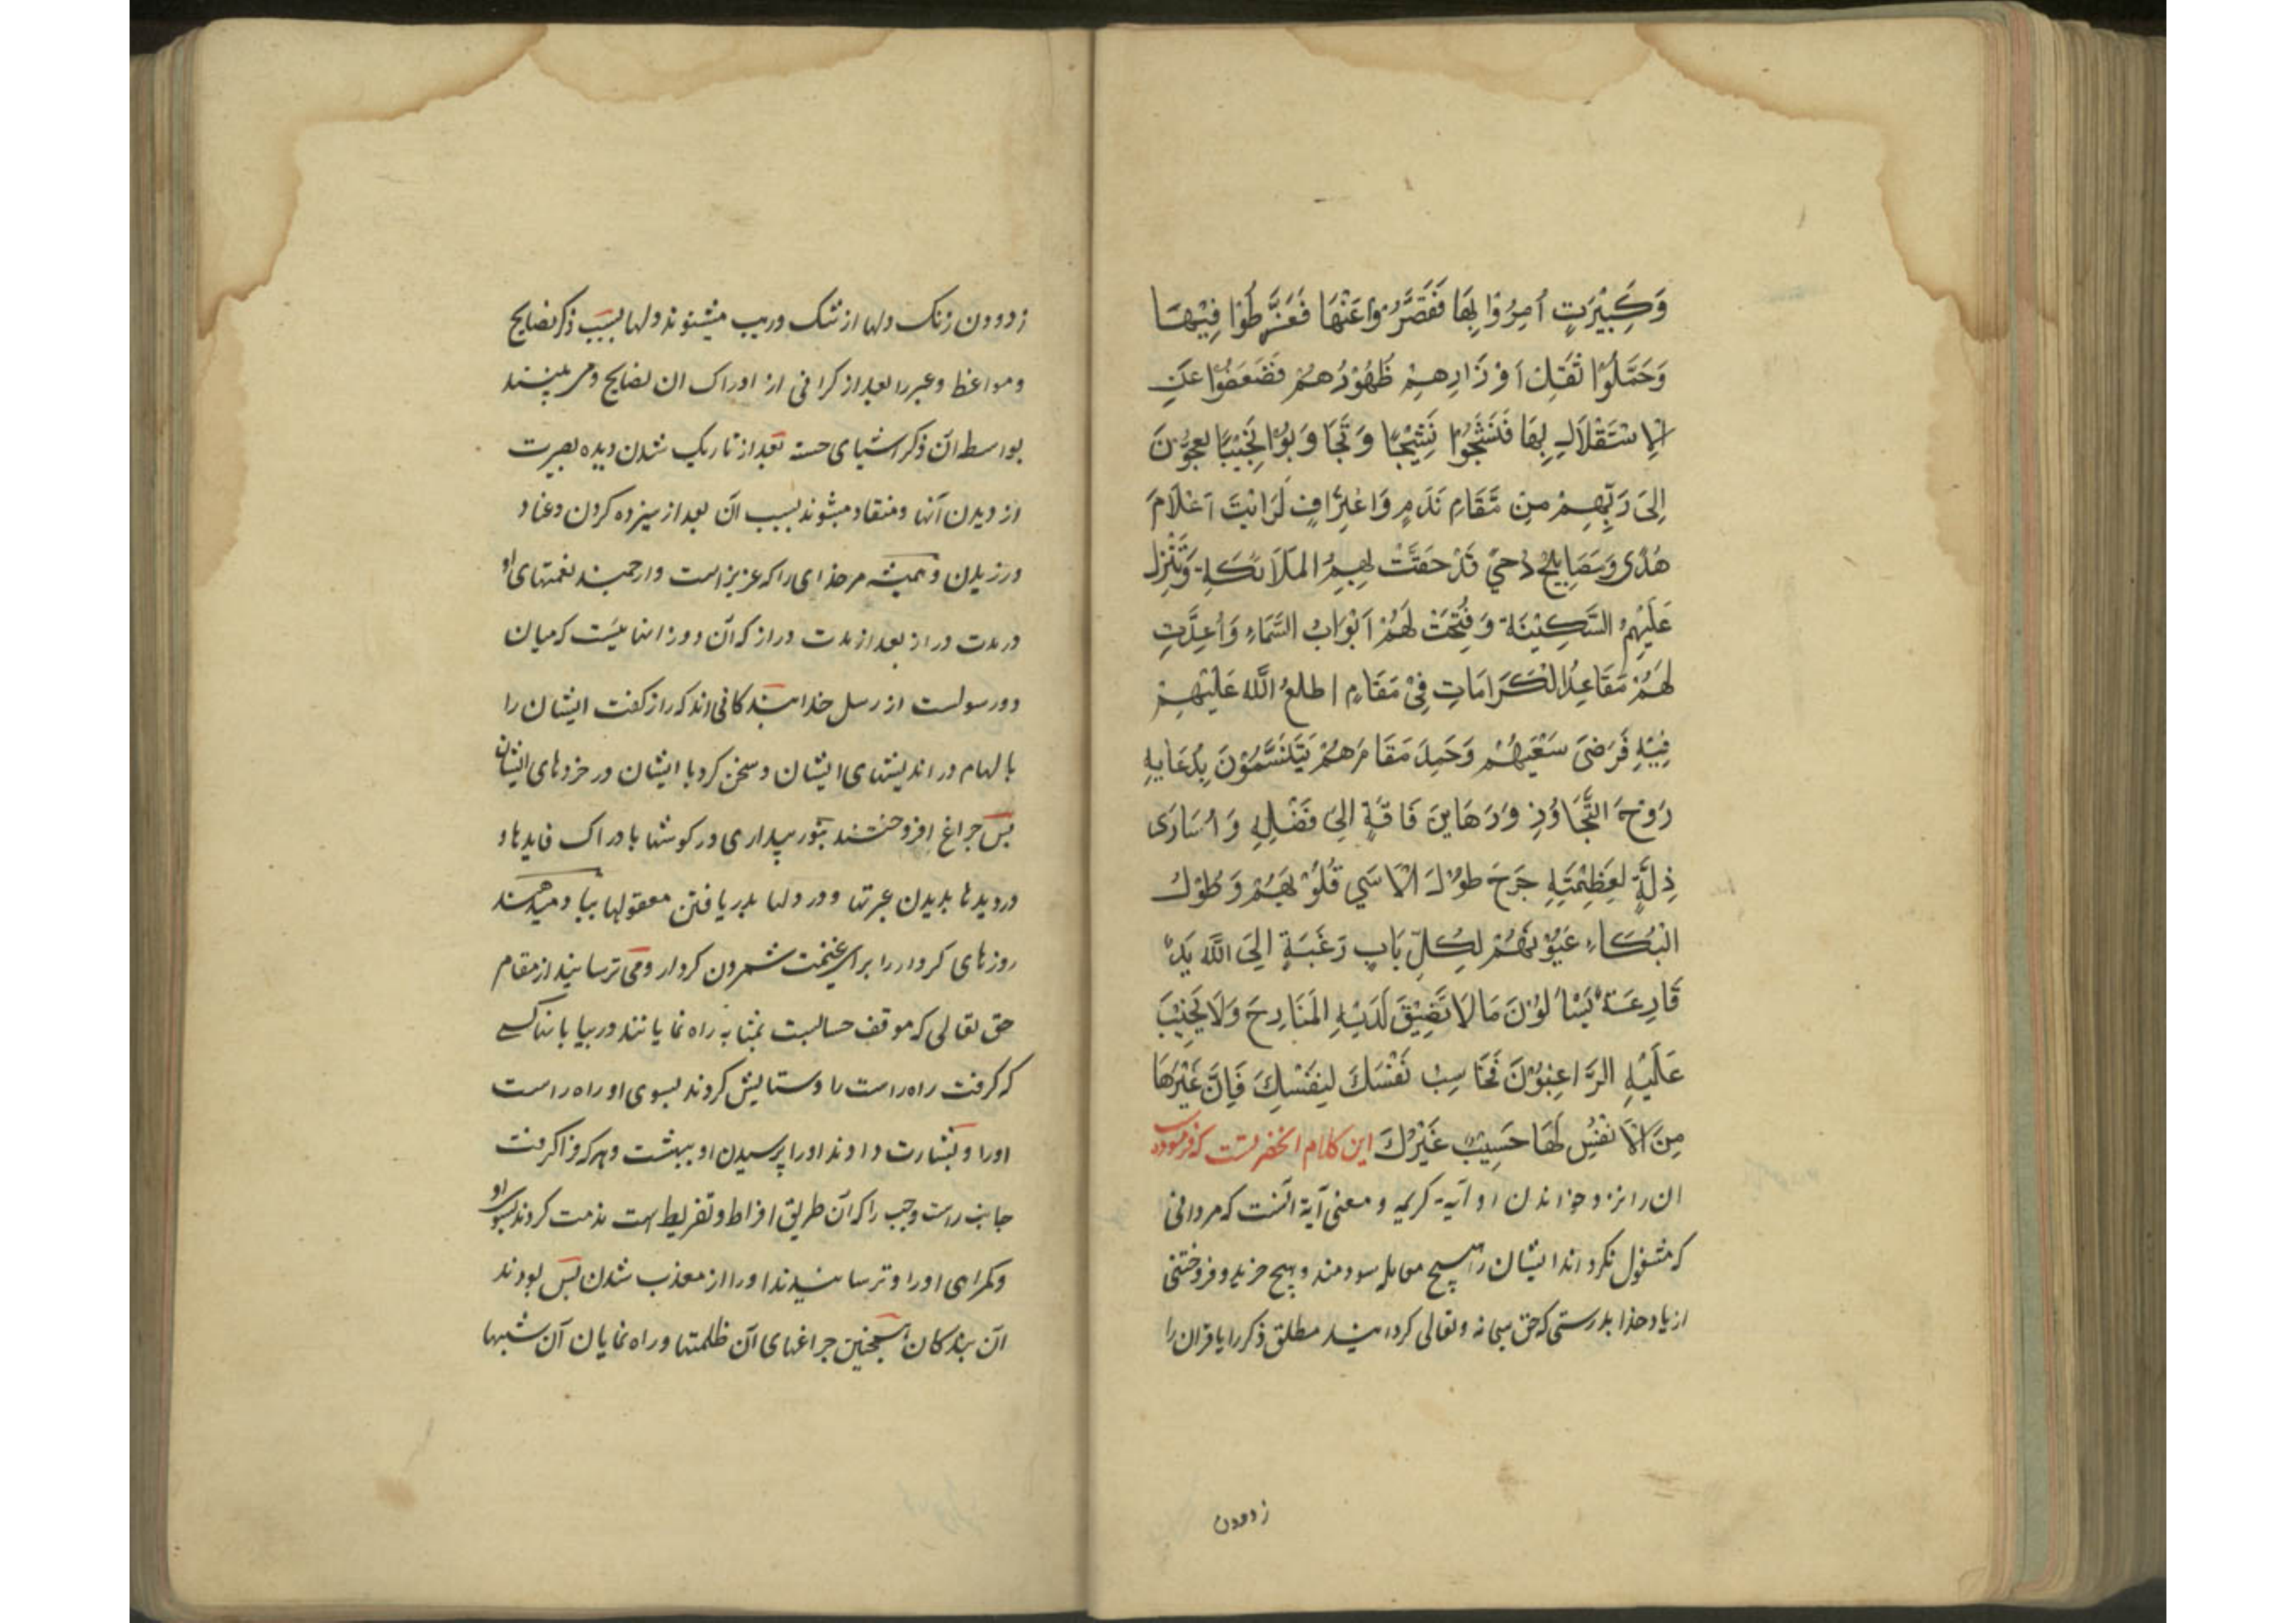 وَكَبِيْرَتٍ اُمِرُوْا بِهَا فَقَصَّرُوْا عَنْهَا فَفَرَّطُوْا فِيْهَا
وَحَمَّلُوْا ثَقَلَ اَوْزَارِهِمْ ظُهُوْرُهُمْ فَضَعَفُوْا عَنِ
الْاِسْتَقْلَالِ بِهَا فَنَشَجُوْا نَشِيْجًا وَتَجَاوَبُوْا نَحِيْبًا يَعِجُّوْنَ
اِلَى رَبِّهِمْ مِنْ مَّقَامِ نَدَمٍ وَاعْتِرَافٍ لَرَاَيْتَ اَعْلَامَ
هُدًى وَمَصَابِيْحَ دُجىً قَدْ حَفَّتْ بِهِمُ المَلَائكَةِ وَتَنْزِلُ
عَلَيْهِمُ السَّكِيْنَةَ وَفُتِحَتْ لَهُمْ اَبْوَابُ السَّمَاءِ وَاُعِدَّتِ
لَهُمْ مَقَاعِدُ الْكَرَامَاتِ فِيْ مَقَامٍ اطلعُ اللّٰهُ عَلَيْهِمْ
فِيْهِ فَرَضىَ سَعْيَهُمْ وَحَمِدَ مَقَامَهُمْ يَتَنَسَّمُوْنَ بِدُعَايِهِ
رَوْحَ التَّجَاوُذِ وَرَهَاينَ فَاقَةٍ اِلىَ فَضْلِهِ وَاُسَارَى
ذِلَّةٍ لِعَظِمْتِهِ جَرَحَ طُوْلَ الْاَسَي قُلُوْبَهُمْ وَطُوْلُ
الْبُكَاءِ عَيُوْنَهُمْ لِكُلِّ بَابٍ رَغَبَةٍ اِلَى اللّٰهِ يَدٌ
قَارِعَةٌ يَسْاَلُوْنَ مَا لَا تَضِيْقَ لَدَيْهِ المَنَادِحَ وَلَا يَخِيْبَ
عَلَيْهِ الرَّاغِبُوْنَ فَحَاسِبْ نَفْسَكَ لِنَفْسِكَ فَاِنَّ غَيْرَهَا
مِنَ الْاَنْفُسِ لَهَا حَسِيْبٌ غَيْرُكَ این کلام انحضرتست که فرموده
ان را نزد خواندن او آیهٔ کریمه و معنی آیة آنست که مردانی
که مشغول نکرداند ایشان را هیچ معامله سودمند و هیچ خرید و فروختنی
از یاد خدا بدرستی که حق سبحانه و تعالی کردانید مطلق ذکر را یا قران را
زدودن
زدودن زنک دلها از شک و ریب میشنوند دلها بسبب ذکر نصایح
و مواعظ و عبر را بعد از کرانی از ادراک ان نصایح و می بینند
بواسطه آن ذکر اشیای حسنه بعد از تاریک شدن دیده بصیرت
از دیدن آنها و منقاد میشوند بسبب آن بعد از ستیزه کردن و عناد
ورزیدن و همیشه مر خدای را که عزیز است و ارجمند نعمتهای او
در مدت دراز بعد از مدت دراز که آن در زمانهائیست که میان
دو رسولست از رسل خدا بندکانی اند که راز کفت ایشان را
بالهام در اندیشهای ایشان و سخن کرد با ایشان در خردهای ایشان
پس چراغ افروختند بنور بیداری در کوشها بادراک فایدها و
در دیدها بدیدن عبرتها و در دلها بدریافتن معقولها بیاد میدهند
روزهای کردار را برای غنیمت شمردن کردار و می ترسانند از مقام
حق تعالی که موقف حسابست بمثابه راه نمایانند در بیابانها کسی
که کرفت راه راست را و ستایش کردند بسوی او راه راست
او را و بشارت دادند او را برسیدن او ببهشت و هر که فرا کرفت
جانب راست و چپ را که آن طریق افراط و تفریط است مذمت کردند بسوی او
و کمراهی او را و ترسانیدند او را از معذب شدن پس بودند
آن بندکان همچنین چراغهای آن ظلمتها و راه نمایان آن شبهها